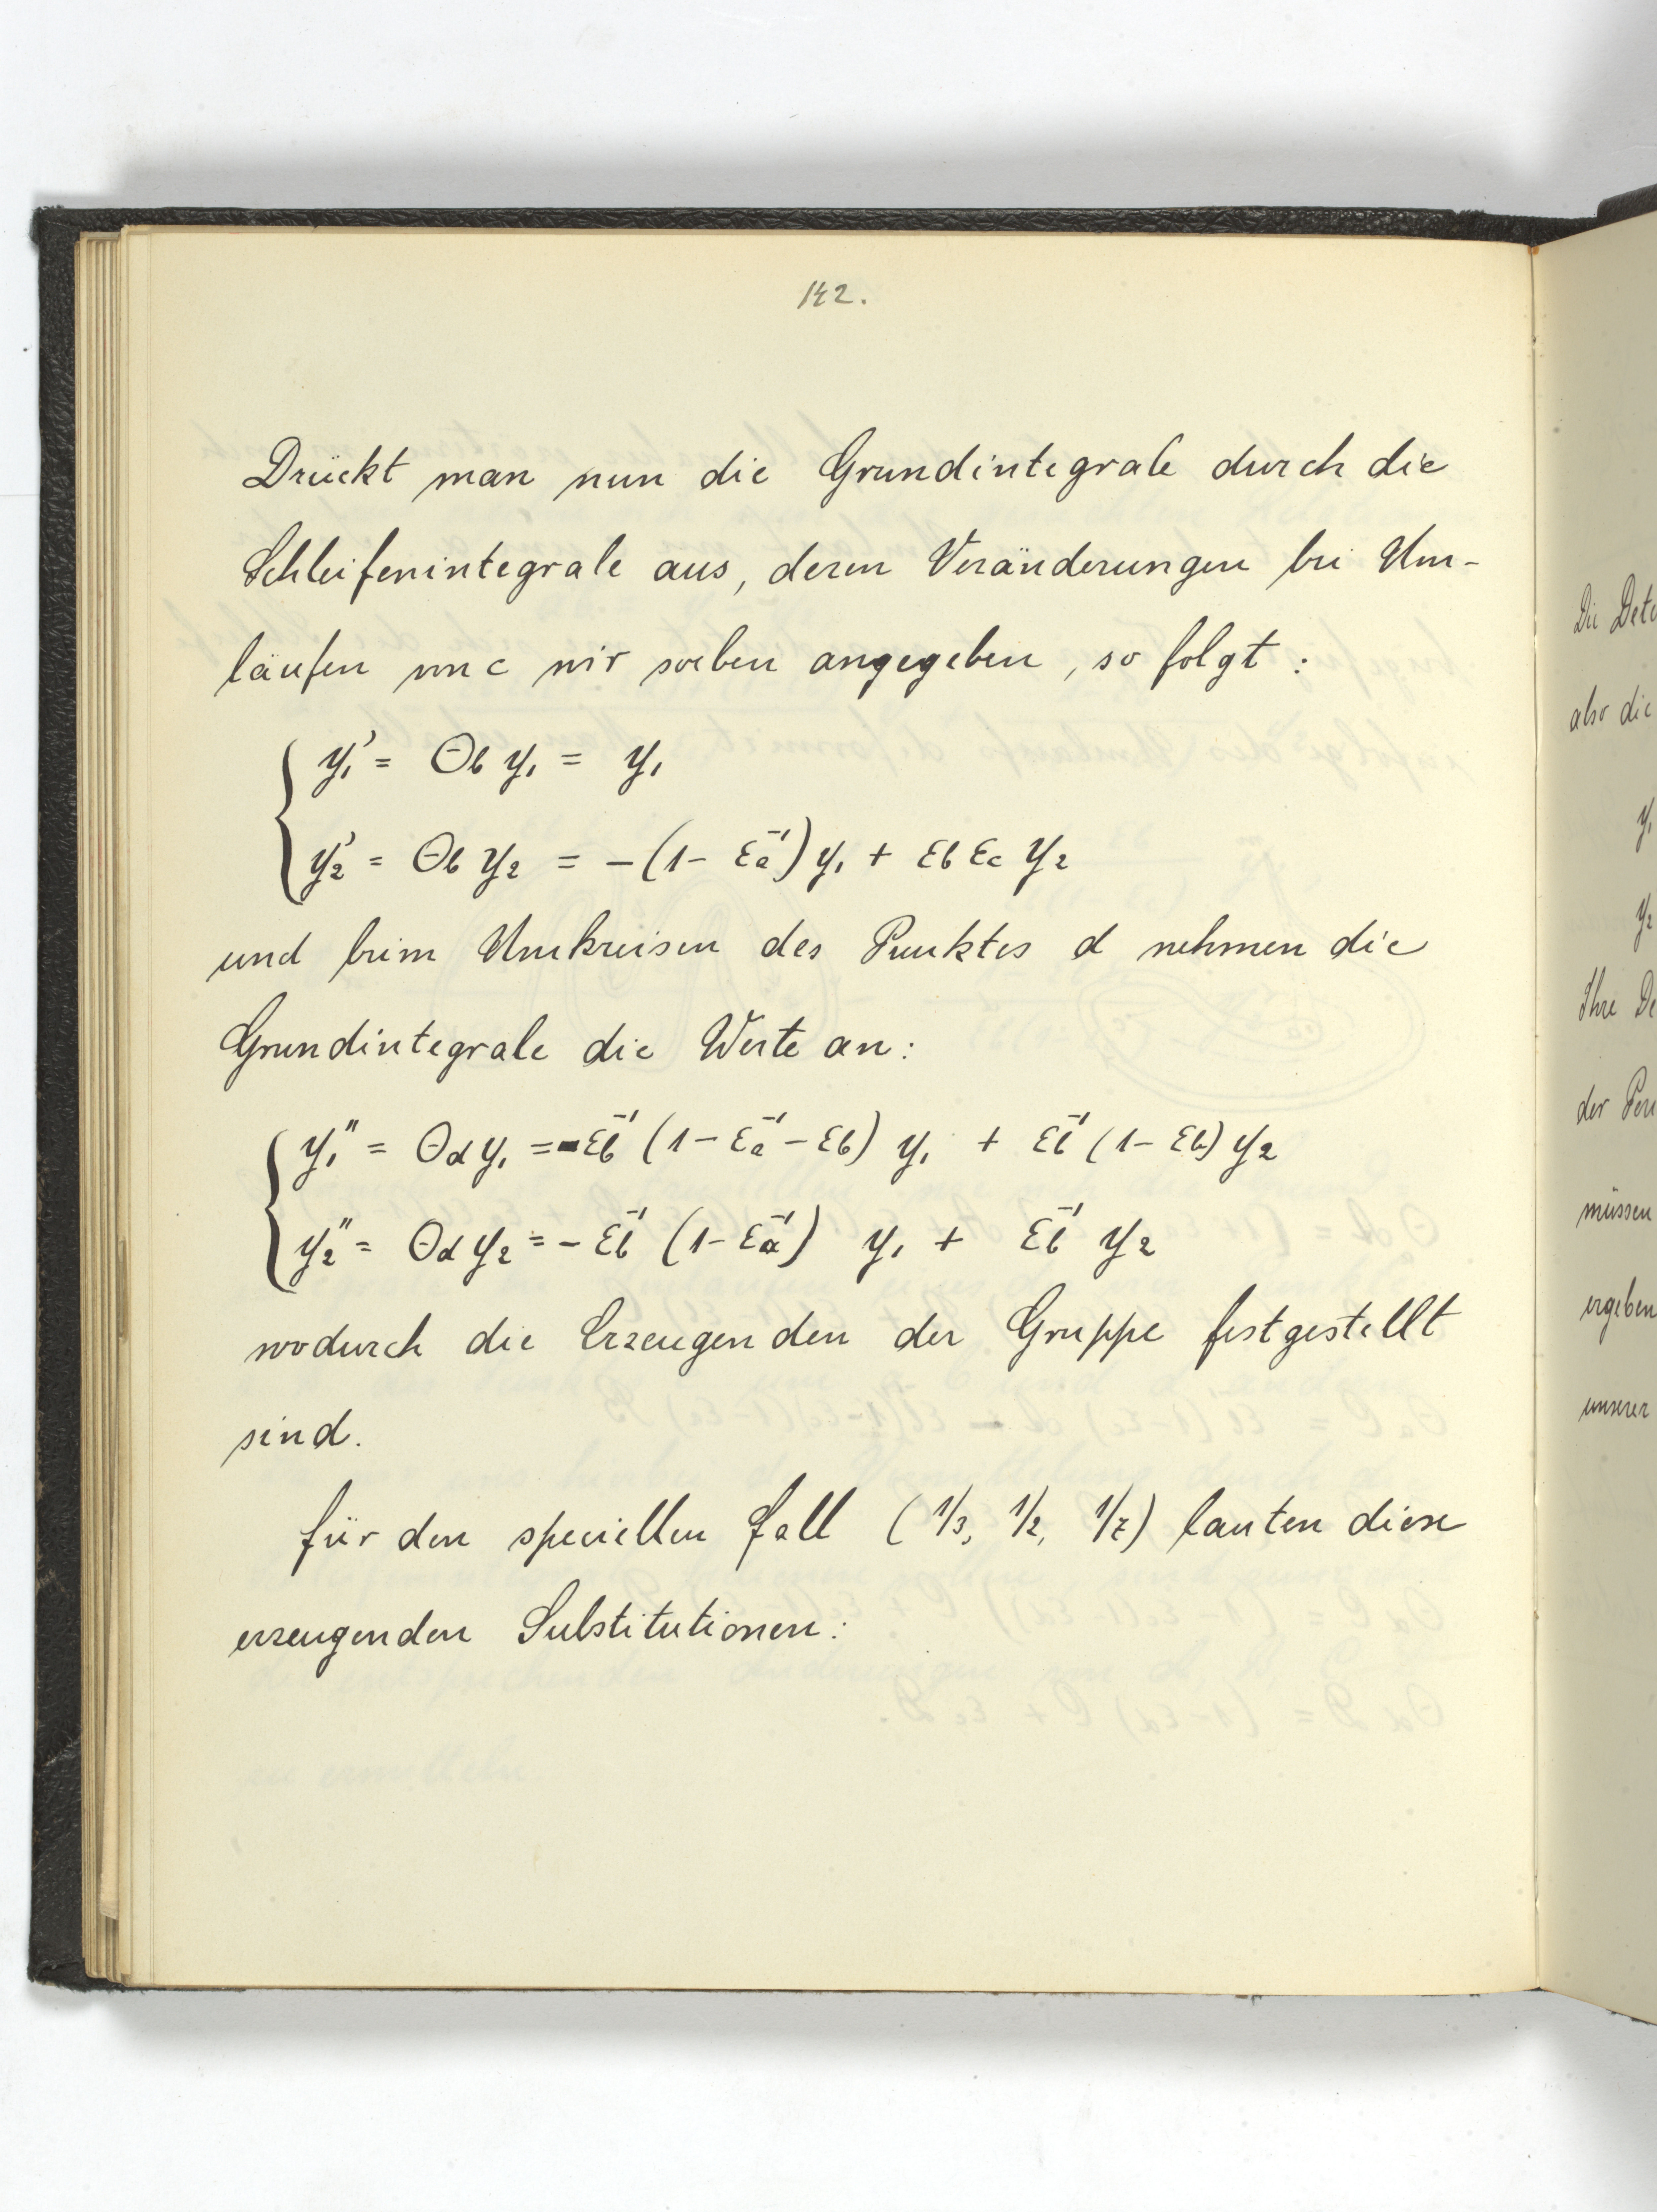 142.
Drückt man nun die Grundintegrale durch die
Schleifenintegrale aus, deren Veränderungen bei Um-
läufen um c wir soeben angegeben, so folgt:
y₁' = Θb y₁ = y₁
y₂' = Θb y₂ = -(1- εa⁻¹) y₁ + εb εc y₂
und beim Umkreisen des Punktes d nehmen die
Grundintegrale die Werte an:
y₁'' = Θd y₁ = -εb⁻¹ (1- εa⁻¹ - εb) y₁ + εb⁻¹ (1- εb) y₂
y₂'' = Θd y₂ = - εb⁻¹ (1- εa⁻¹) y₁ + εb⁻¹ y₂
wodurch die Erzeugenden der Gruppe festgestellt
sind.
für den speciellen Fall (1/3, 1/2, 1/7) lauten diese
erzeugenden Substitutionen:
Die
also die
y₁
y₂
Ihre
der
müssen
ergeben
unserer